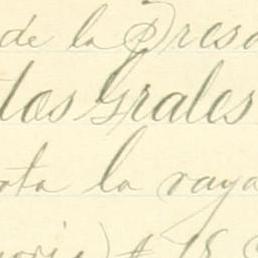 de la Presa
tos Grales
ota la raya